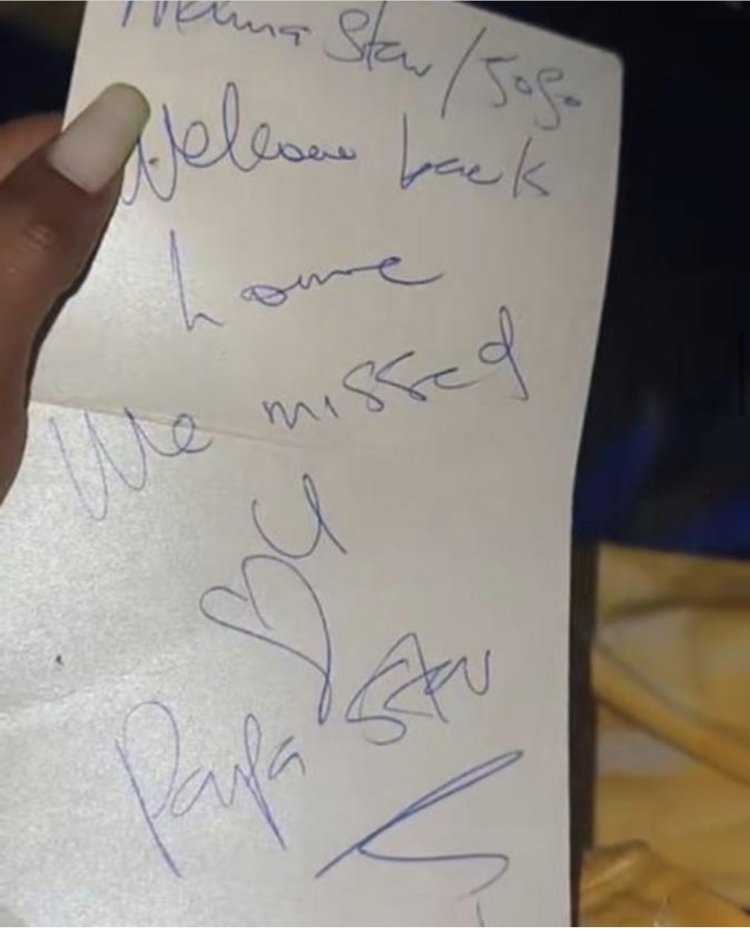 Mama Star/Gogo
Welcome back
home
We missed
U
Papa Star